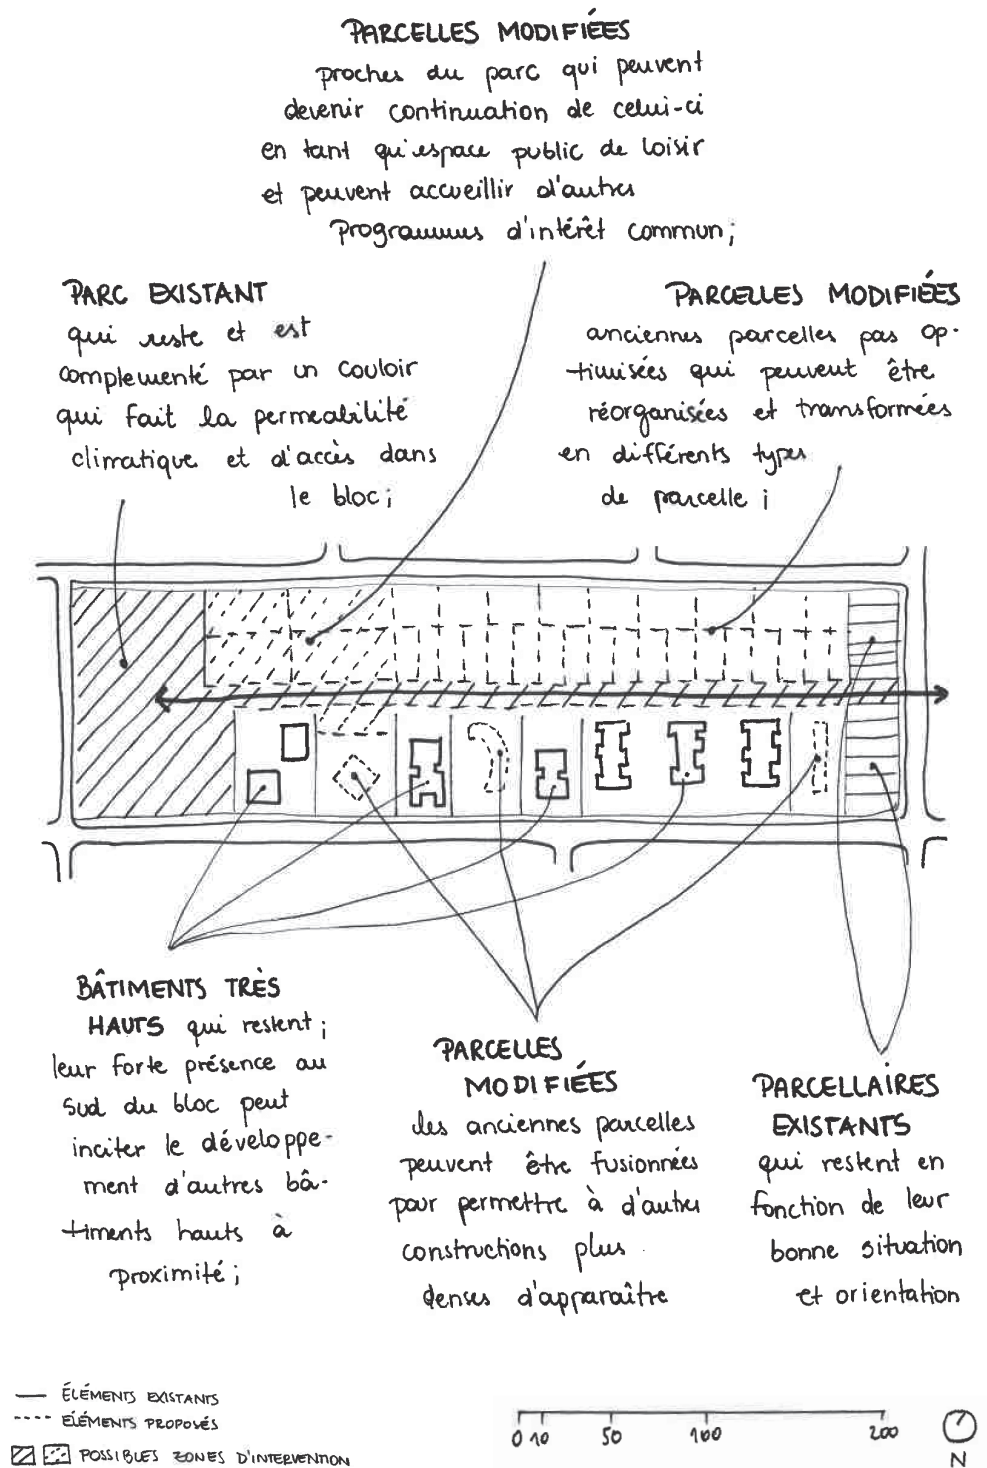 PARCELLES MODIFIÉES
proches du parc qui peuvent
devenir continuation de celui-ci
en tant qu'espace public de loisir
et peuvent accueillir d'autres
programmes d'intérêt commun;
PARC EXISTANT
qui reste et est
complementé par un couloir
qui fait la permeabilité
climatique et d'accès dans
le bloc;
PARCELLES MODIFIÉES
anciennes parcelles pas op-
timisées qui peuvent être
réorganisées et transformées
en différents types
de parcelle;
BÂTIMENTS TRÈS
HAUTS qui restent;
leur forte présence au
sud du bloc peut
inciter le développe-
ment d'autres bâ-
timents hauts à
proximité;
PARCELLES
MODIFIÉES
des anciennes parcelles
peuvent être fusionnées
pour permettre à d'autres
constructions plus
denses d'apparaître
PARCELLAIRES
EXISTANTS
qui restent en
fonction de leur
bonne situation
et orientation
ÉLÉMENTS EXISTANTS
ÉLÉMENTS PROPOSÉS
POSSIBLES ZONES D'INTERVENTION
0 10 50 100 200
N